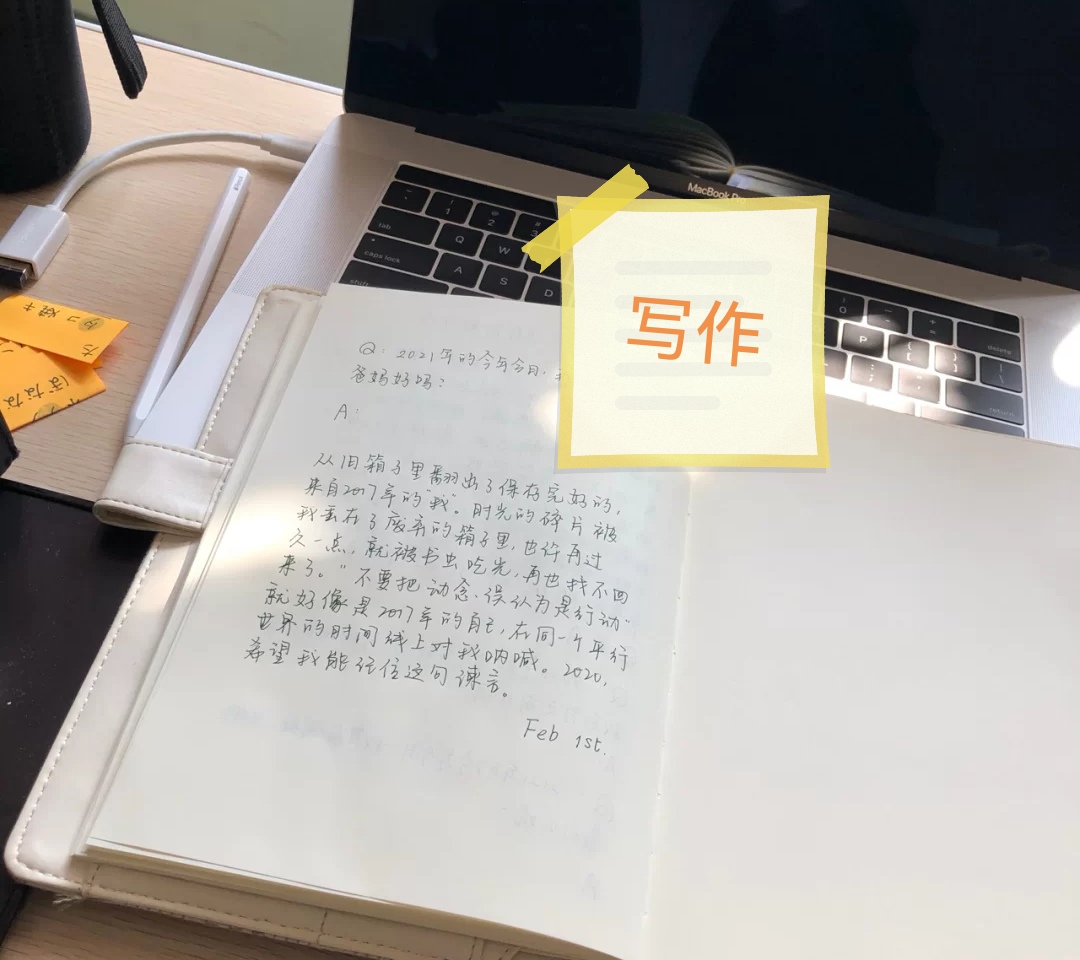 MacBook Pro
写作
tab
Q
W
caps lock
A
S
D
shift
P
delete
return
Q: 2021年的今年今日,
爸妈好吗?
A:
从旧箱子里翻出了保存完好的,
来自2017年的“我”。时光的碎片被
我丢在了废弃的箱子里,也许再过
久一点,就被书虫吃光,再也找不回
来了。“不要把动念,误认为是行动”
就好像是2017年的自己,在同一个平行
世界的时间线上对我呐喊。2020,
希望我能记住这句谏言。
Feb 1st.